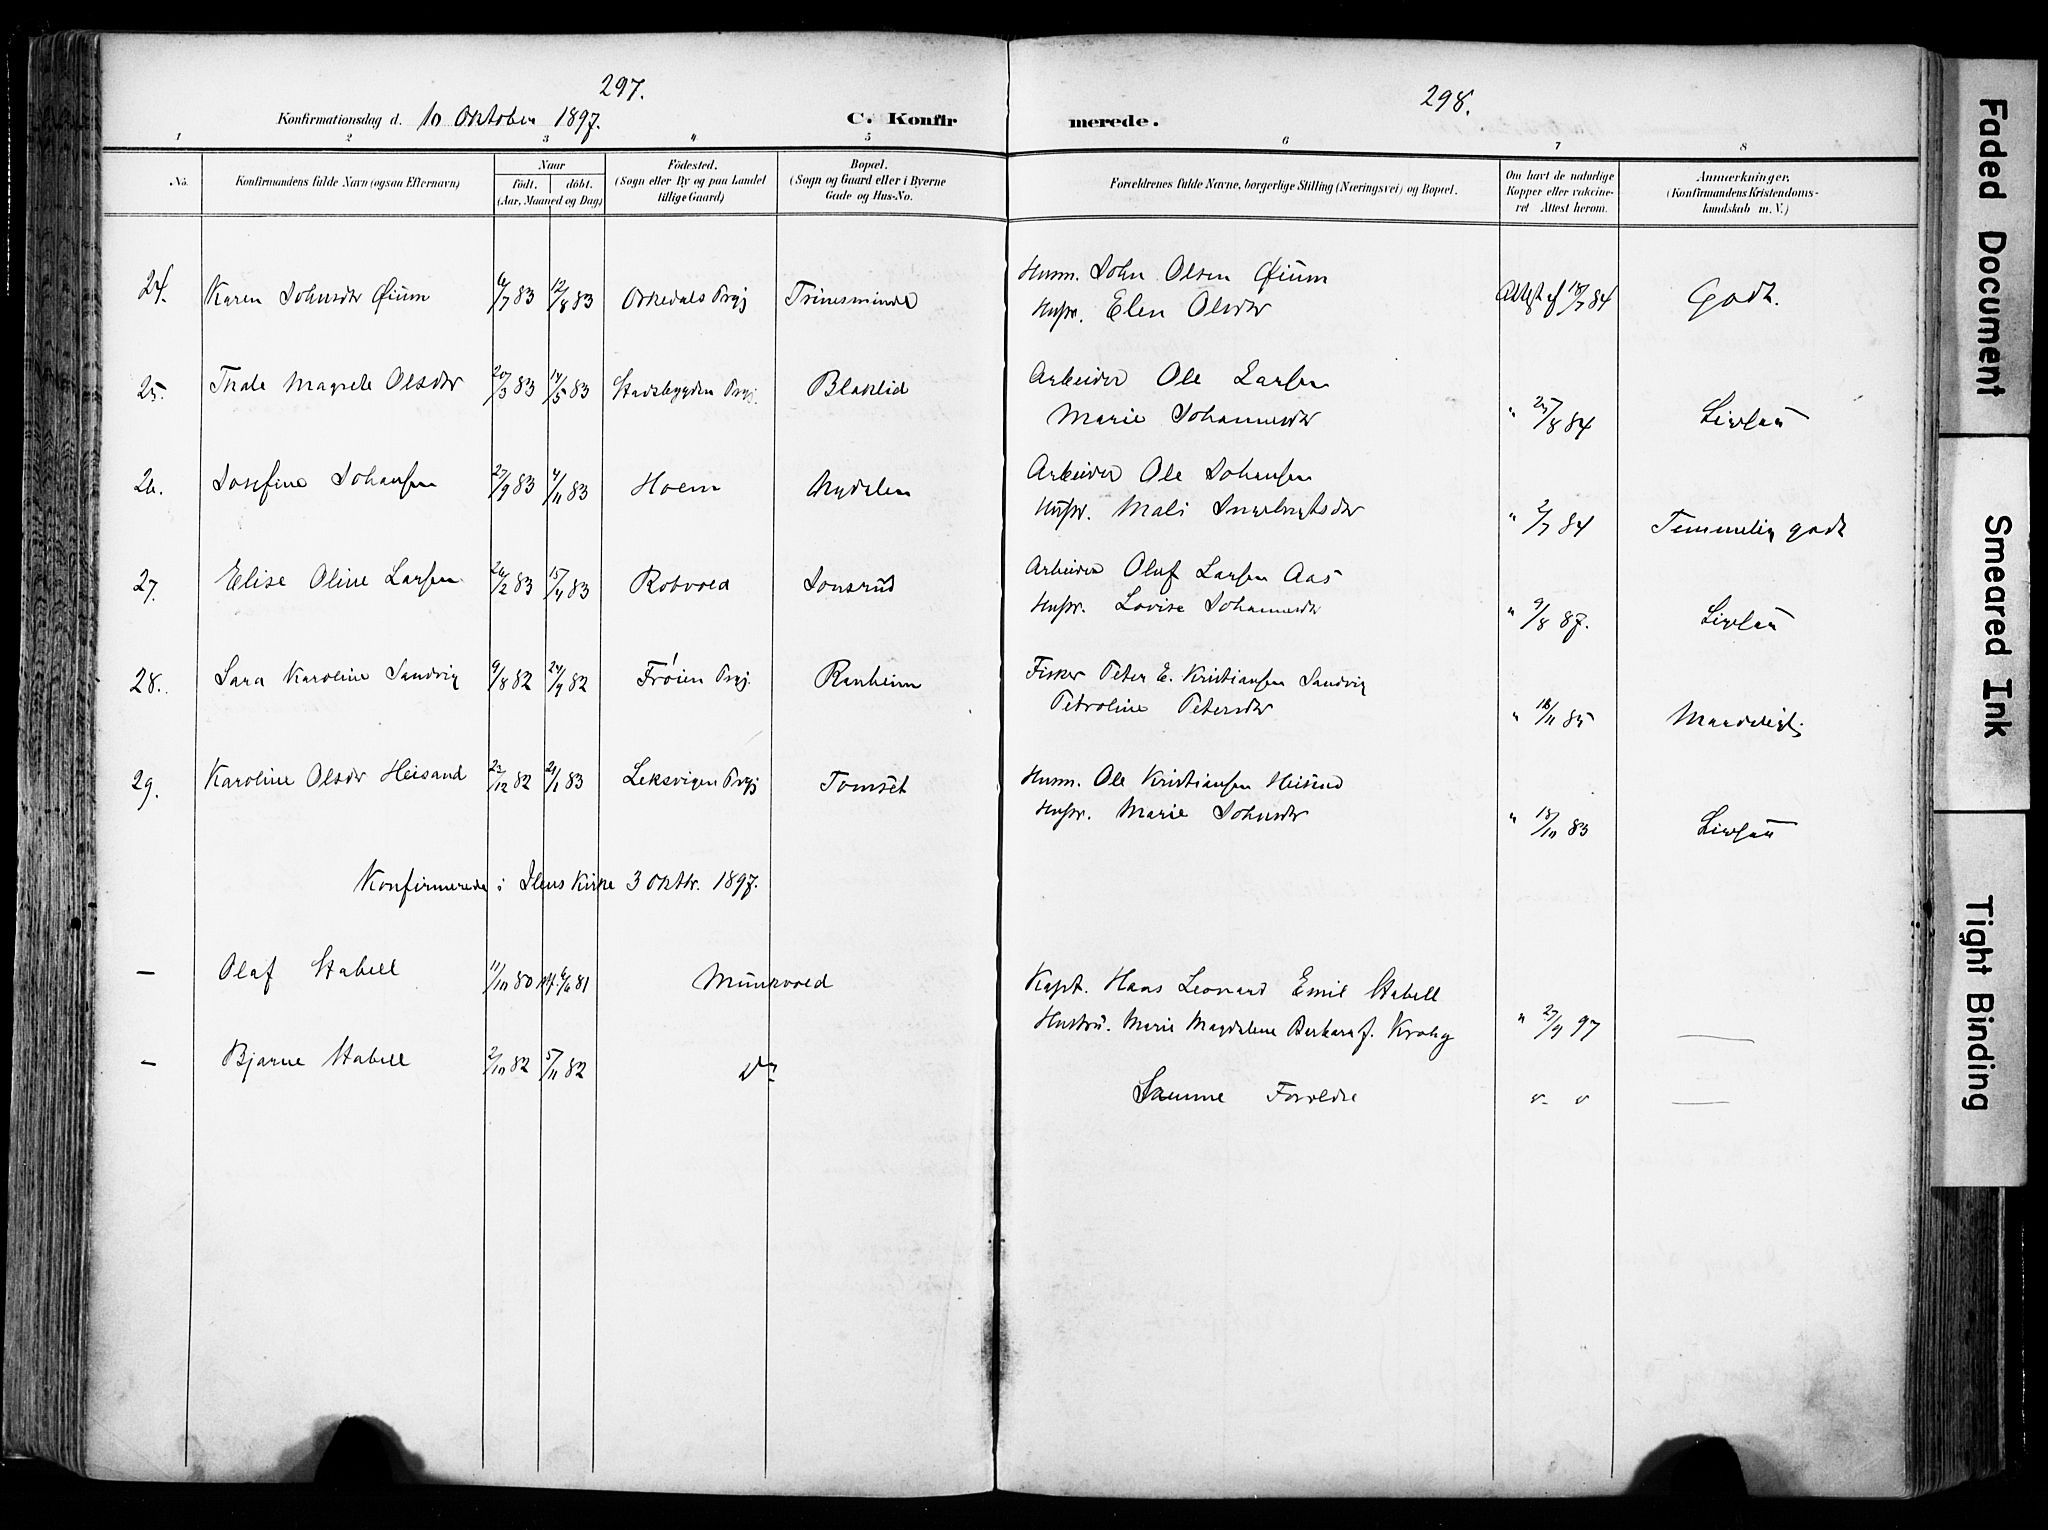 297.
298.
Konfirmationsdag d. 10 Oktober 1897.
C. Konfir
merede.
1 2 3 4 5 6 7 8
No.
Konfirmandens fulde Navn (ogsaa Efternavn)
Naar
født. døbt.
(Aar, Maaned og Dag)
Fødested.
(Sogn eller By og paa Landet
tillige Gaard)
Bopæl.
(Sogn og Gaard eller i Byerne
Gade og Hus-No.
Forældrenes fulde Navne, borgerlige Stilling (Næringsvei) og Bopæl.
Om havt de naturlige
Kopper eller vakcine-
ret Attest herom.
Anmærkninger.
(Konfirmandens Kristendoms-
kundskab m. V.)
24. Karen Johnsdtr Øium 6/7 83 12/8 83 Orkedals Prgj Trinesminde
Husm. John Olsen Øium
Hustr. Elen Olsdtr
Attest af 18/7 84 Godt.
25. Thale Magrete Olsdtr 20/3 83 14/5 83 Stadsbygden Prgj. Blaklid
Arbeider Ole Larsen
Marie Johannesdtr
" 25/8 84 Livlaü
26. Josefine Johansen 27/9 83 4/11 83 Hoem Nydalen
Arbeider Ole Johansen
Hustr. Mali Ingebrigtsdtr
" 2/7 84 Temmelig godt
27. Elise Oline Larsen 26/2 83 15/4 83 Rotvold Jonsrud
Arbeider Oluf Larsen Aas
Hustr. Lovise Johannesdtr
" 9/8 87. Livlaü
28. Sara Karoline Sandvig 9/8 82 24/9 82 Frøien Prgj. Ranheim
Fisker Peter E. Kristiansen Sandvig
Petroline Petersdtr
" 18/11 85 Maadeligt
29. Karoline Olsdtr Heisand 23/12 82 21/1 83 Leksvigen Prgj Tomset
Husm. Ole Kristiansen Heisand
Hustr. Marie Johnsdtr
" 18/10 83 Livlaü
Konfirmerede i Ilens Kirke 3 Oktbr. 1897.
— Olaf Stabell 11/10 80 6/6 81 Munkvold
Kapt. Hans Leonard Emil Stabell
Hustru. Marie Magdalene Barbara f. Krohg
" 27/9 97 —
— Bjarne Stabell 2/10 82 5/11 82 Do
Samme Forældre
" " —
Faded Document
Smeared Ink
Tight Binding